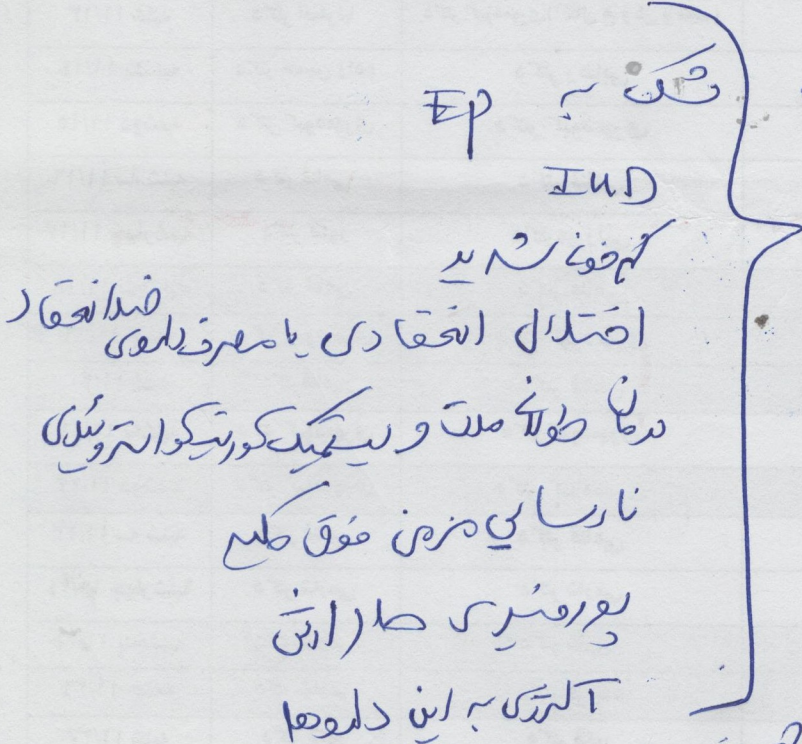 شک به EP
IUD
کم خونی شدید
اختلال انعقادی یا مصرف داروی ضد انعقاد
درمان طولانی مدت و سیستمیک کورتیکواستروئیدی
نارسایی مزمن فوق کلیه
پورفیری های ارثی
آلرژی به این داروها